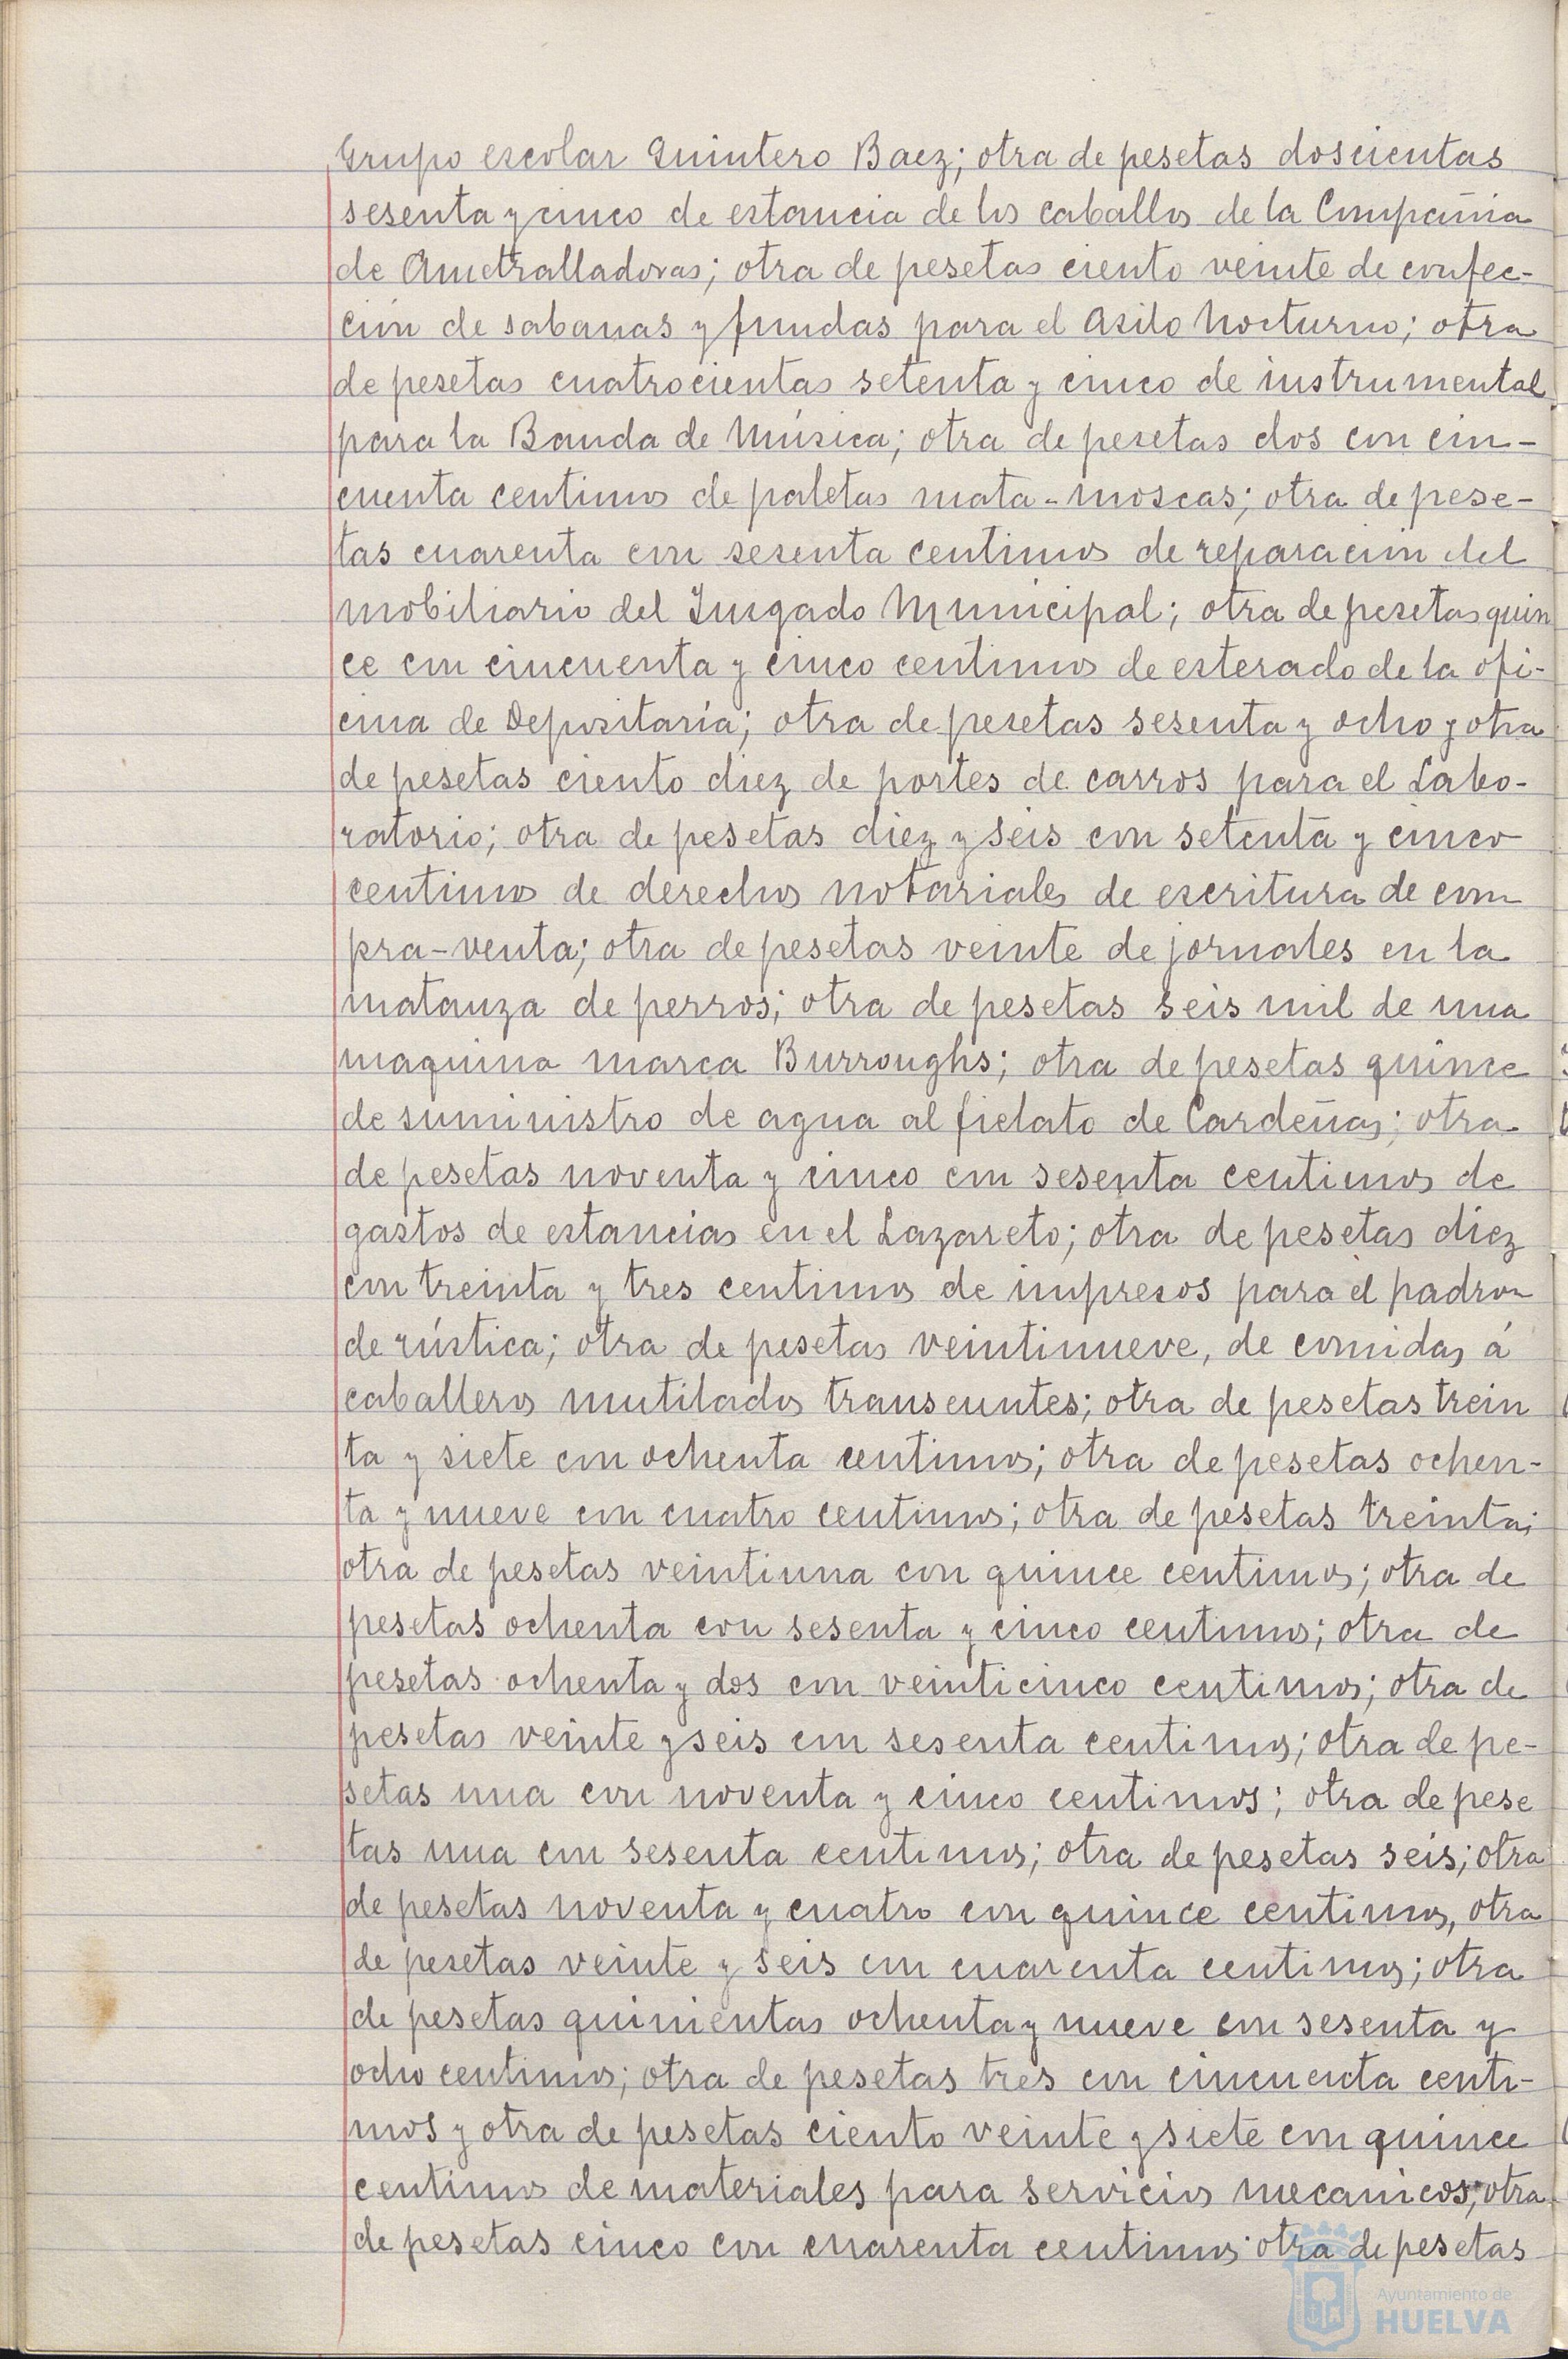 Grupo escolar Quintero Baez; otra de pesetas doscientas
sesenta y cinco de estancia de los caballos de la Compañia
de Ametralladoras; otra de pesetas ciento veinte de confec-
ción de sabanas y fundas para el Asilo Nocturno; otra
de pesetas cuatrocientas setenta y cinco de instrumental
para la Banda de Música; otra de pesetas dos con cin-
cuenta centimos de paletas mata-moscas; otra de pese-
tas cuarenta con sesenta centimos de reparacion del
mobiliario del Juzgado Municipal; otra de pesetas quin
ce con cincuenta y cinco centimos de esterado de la ofi-
cina de Depositaría; otra de pesetas sesenta y ocho y otra
de pesetas ciento diez de portes de carros para el Labo-
ratorio; otra de pesetas diez y seis con setenta y cinco
centimos de derechos notariales de escritura de com
pra-venta; otra de pesetas veinte de jornales en la
matanza de perros; otra de pesetas seis mil de una
maquina marca Burroughs; otra de pesetas quince
de suministro de agua al fielato de Cardeñas; otra
de pesetas noventa y cinco con sesenta centimos de
gastos de estancias en el Lazareto; otra de pesetas diez
con treinta y tres centimos de impresos para el padron
de rústica; otra de pesetas veintinueve, de comidas á
caballeros mutilados transeuntes; otra de pesetas trein
ta y siete con ochenta centimos; otra de pesetas ochen-
ta y nueve con cuatro centimos; otra de pesetas treinta;
otra de pesetas veintiuna con quince centimos; otra de
pesetas ochenta con sesenta y cinco centimos; otra de
pesetas ochenta y dos con veinticinco centimos; otra de
pesetas veinte y seis con sesenta centimos; otra de pe-
setas una con noventa y cinco centimos; otra de pese
tas una con sesenta centimos; otra de pesetas seis; otra
de pesetas noventa y cuatro con quince centimos, otra
de pesetas veinte y seis con cuarenta centimos; otra
de pesetas quinientas ochenta y nueve con sesenta y
ocho centimos; otra de pesetas tres con cincuenta centi-
mos y otra de pesetas ciento veinte y siete con quince
centimos de materiales para servicios mecanicos; otra
de pesetas cinco con cuarenta centimos otra de pesetas
Ayuntamiento de
HUELVA